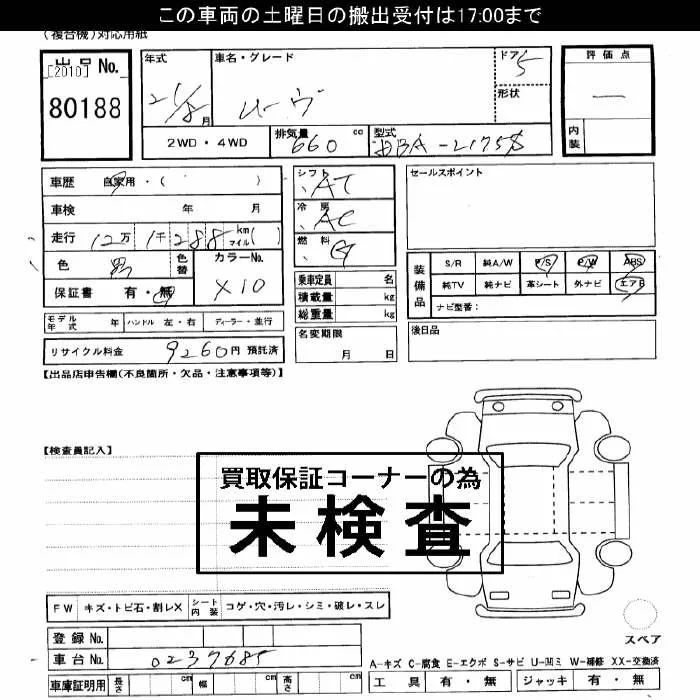 この車両の土曜日の搬出受付は17:00まで
(複合機)対応用紙
出品 No. [2010]
80188
年式 21/8 月
車名・グレード ムーヴ
ドア 5
形状
評価点 —
内装
2WD・4WD
排気量 660 cc
型式 DBA-L175S
車歴 自家用・( )
車検 年 月
走行 12万 1千 288 km マイル( )
色
色替
カラーNo. X10
保証書 有・無
モデル年式 年 ハンドル 左・右 ディーラー・並行
リサイクル料金 9260円 預託済
シフト AT
冷房 AC
燃料 G
乗車定員 名
積載量 kg
総重量 kg
名変期限
月 日
セールスポイント
装備品
S/R 純A/W P/S P/W ABS
純TV 純ナビ 革シート 外ナビ エアB
ナビ型番:
後日品
【出品店申告欄(不良箇所・欠品・注意事項等)】
【検査員記入】
買取保証コーナーの為
未検査
FW キズ・トビ石・割レX シート内装 コゲ・穴・汚レ・シミ・破レ・スレ
登録 No.
車台 No. 0237685
車庫証明用 長さ cm 幅 cm 高さ cm
スペア
A-キズ C-腐食 E-エクボ S-サビ U-凹ミ W-補修 XX-交換済
工具 有・無 ジャッキ 有・無